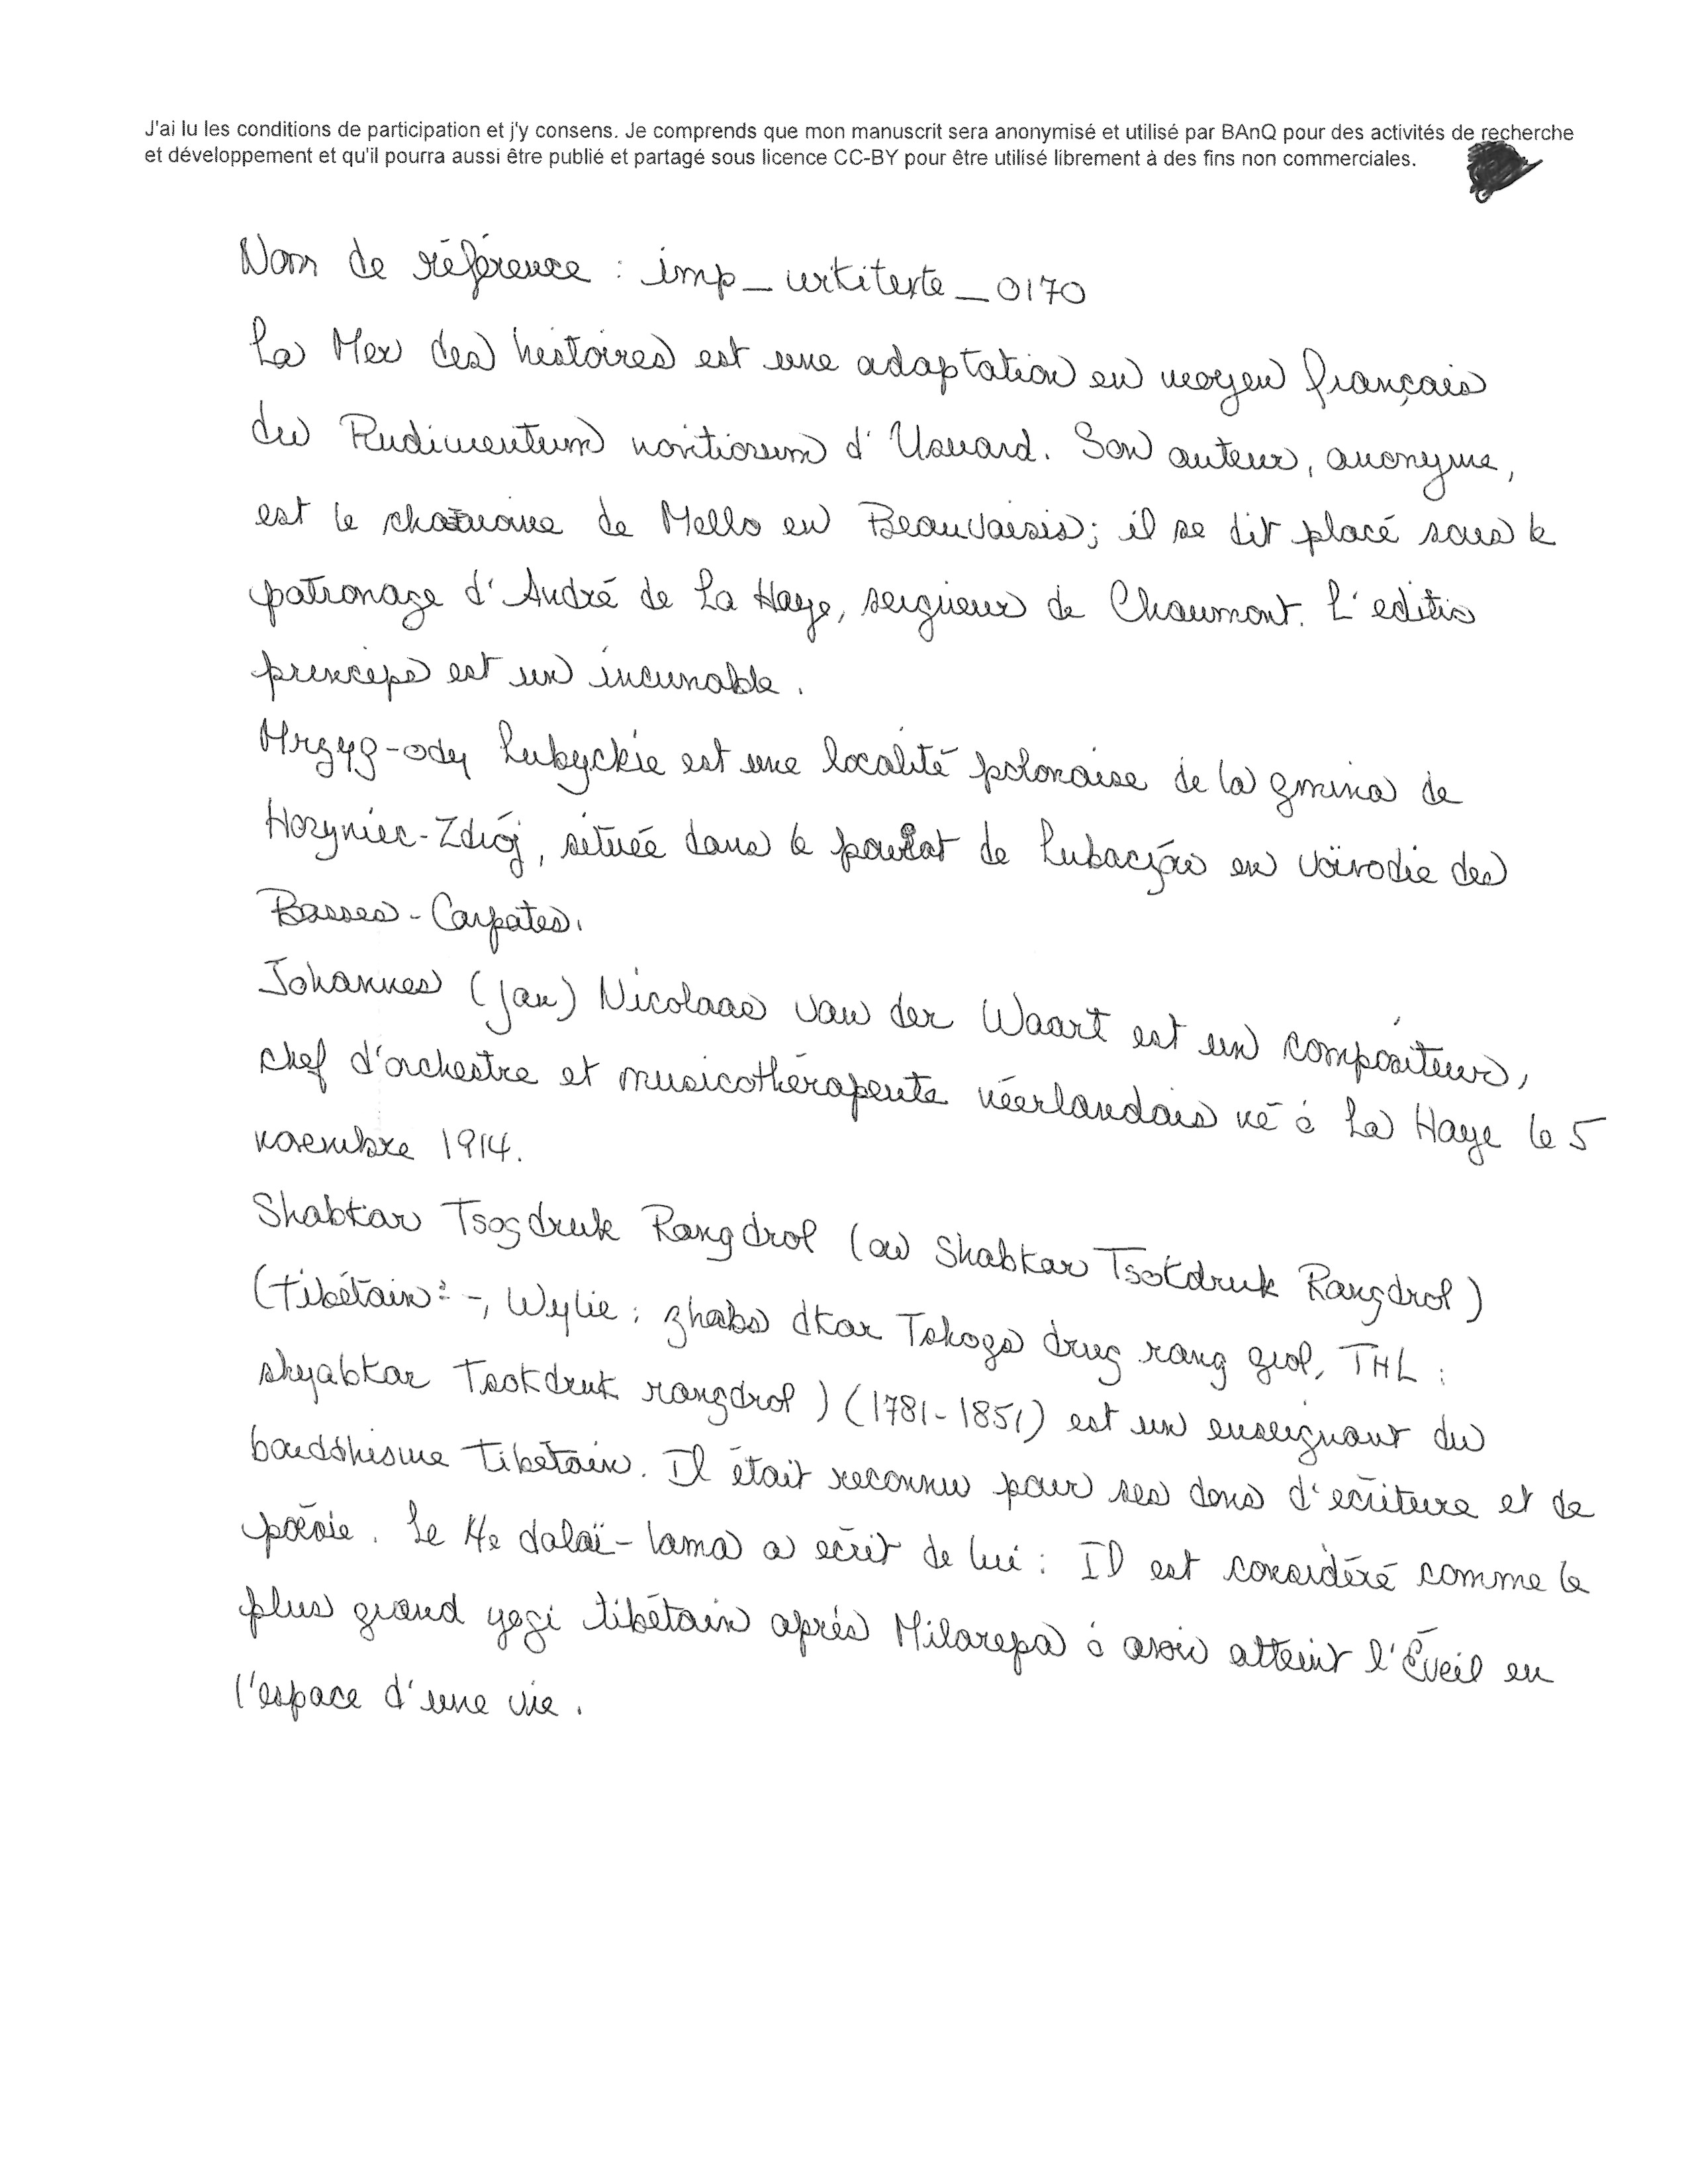 J'ai lu les conditions de participation et j'y consens. Je comprends que mon manuscrit sera anonymisé et utilisé par BAnQ pour des activités de recherche
et développement et qu'il pourra aussi être publié et partagé sous licence CC-BY pour être utilisé librement à des fins non commerciales.
Nom de référence : imp_wikitexte_0170
La Mer des histoires est une adaptation en moyen français
du Rudimentum novitiorum d'Usuard. Son auteur, anonyme,
est le chanoine de Mello en Beauvaisis; il se dit placé sous le
patronage d'André de La Haye, seigneur de Chaumont. L'editio
princeps est un incunable.
Mrzyg-ody Lubyckie est une localité polonaise de la gmina de
Horyniec-Zdrój, située dans le powiat de Lubaczów en voïvodie des
Basses-Carpates.
Johannes (Jan) Nicolaas van der Waart est un compositeur,
chef d'orchestre et musicothérapeute néerlandais né à La Haye le 5
novembre 1914.
Shabkar Tsogdruk Rangdrol (ou Shabkar Tsokdruk Rangdrol)
(tibétain : -, Wylie : zhabs dkar Tshogs drug rang grol, THL :
shyabkar Tsokdruk rangdrol) (1781-1851) est un enseignant du
bouddhisme tibétain. Il était reconnu pour ses dons d'écriture et de
poésie. Le 14e dalaï-lama a écrit de lui : Il est considéré comme le
plus grand yogi tibétain après Milarepa à avoir atteint l'Éveil en
l'espace d'une vie.